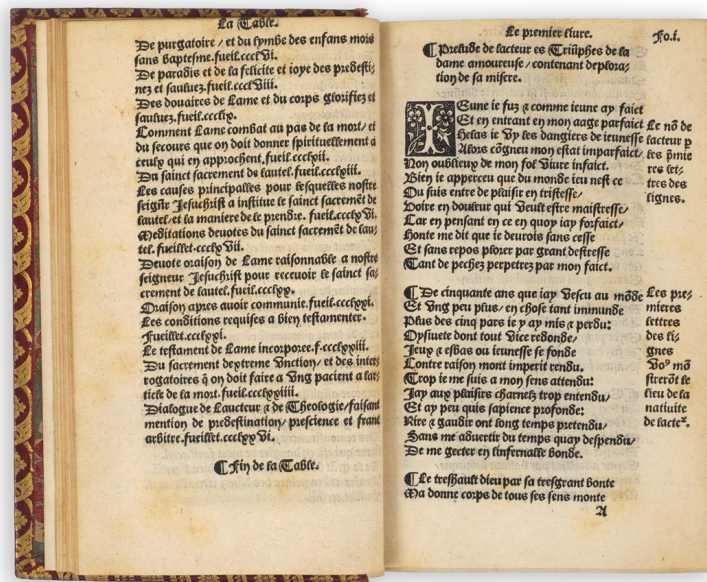 La Table.
De purgatoire / et du lymbe des enfans mors
sans baptesme.fueil.cccc lviii.
De paradis et de la felicite et ioye des predesti-
nez et sauluez.fueil.cccc lviii.
Des douaires de Lame et du corps glorifiez et
sauluez.fueil.cccclx.
Comment Lame combat au pas de la mort / et
du secours que on doit donner spirituellement a
ceulx qui en approchent.fueil.cccclxii.
Du sainct sacrement de lautel.fueil.cccclxiii.
Les causes principalles pour lesquelles nostre
seignr̃ Jesuchrist a institue le sainct sacremẽt de
lautel / et la maniere de le prendre. fueil.cccclxvi.
Meditations deuotes du sainct sacremẽt de lau-
tel.fueillet.cccclxvii.
Deuote oraison de Lame raisonnable a nostre
seigneur Jesuchrist pour receuoir le sainct sa-
crement de lautel.fueil.cccclxx.
Oraison apres auoir communie.fueil.cccclxxi.
Les conditions requises a bien testamenter.
Fueillet.cccclxxi.
Le testament de Lame incorporee.f.cccclxxiii.
Du sacrement dextreme Unction / et des inter-
rogatoires q̃ on doit faire a Ung pacient a lar-
ticle de la mort.fueil.cccclxxiiii.
Dialogue de Laucteur ⁊ de Theologie / faisant
mention de predestination / prescience et franc
arbitre.fueillet.cccclxxvi.
¶ Fin de la Table.
Le premier liure.
Fo.i.
¶ Prelude de lacteur es Triũphes de la
dame amoureuse / contenant deplora-
tion de sa misere.
IEune ie fuz ⁊ comme ieune ay faict
Et en entrant en mon aage parfaict
Helas ie vy les dangiers de ieunesse
Alors cõgneu mon estat imparfaict /
Non oublieux de mon fol viure infaict.
Bien ie apperceu que du monde ieu nest ce
Ou suis entre de plaisir en tristesse /
Voire en douleur qui veult estre maistresse /
Car en pensant en ce en quoy iay forfaict /
Honte me dit que ie deurois sans cesse
Et sans repos plorer par grant destresse
Tant de pechez perpetrez par mon faict.
Le nõ de
lacteur p
les p̃mie
res let-
tres des
lignes.
¶ De cinquante ans que iay vescu au mõde
Et vng peu plus / en chose tant immunde
Plus des cinq pars ie y ay mis ⁊ perdu:
Oysiuete dont tout vice redonde /
Jeux ⁊ esbas ou ieunesse se fonde
Contre raison mont imperit rendu.
Trop ie me suis a mon sens attendu:
Jay aux plaisirs charnelz trop entendu /
Et ay peu quis sapience profonde:
Rire ⁊ gaudir ont long temps pretendu /
Sans me aduertir du temps quay despendu /
De me gecter en linfernalle bonde.
Les pre-
mieres
lettres
des li-
gnes
vo⁹ mõ
strerõt le
lieu de la
natiuite
de lacte
¶ Le treshault dieu par sa tresgrant bonte
Ma donne corps de tous ses sens monte
A